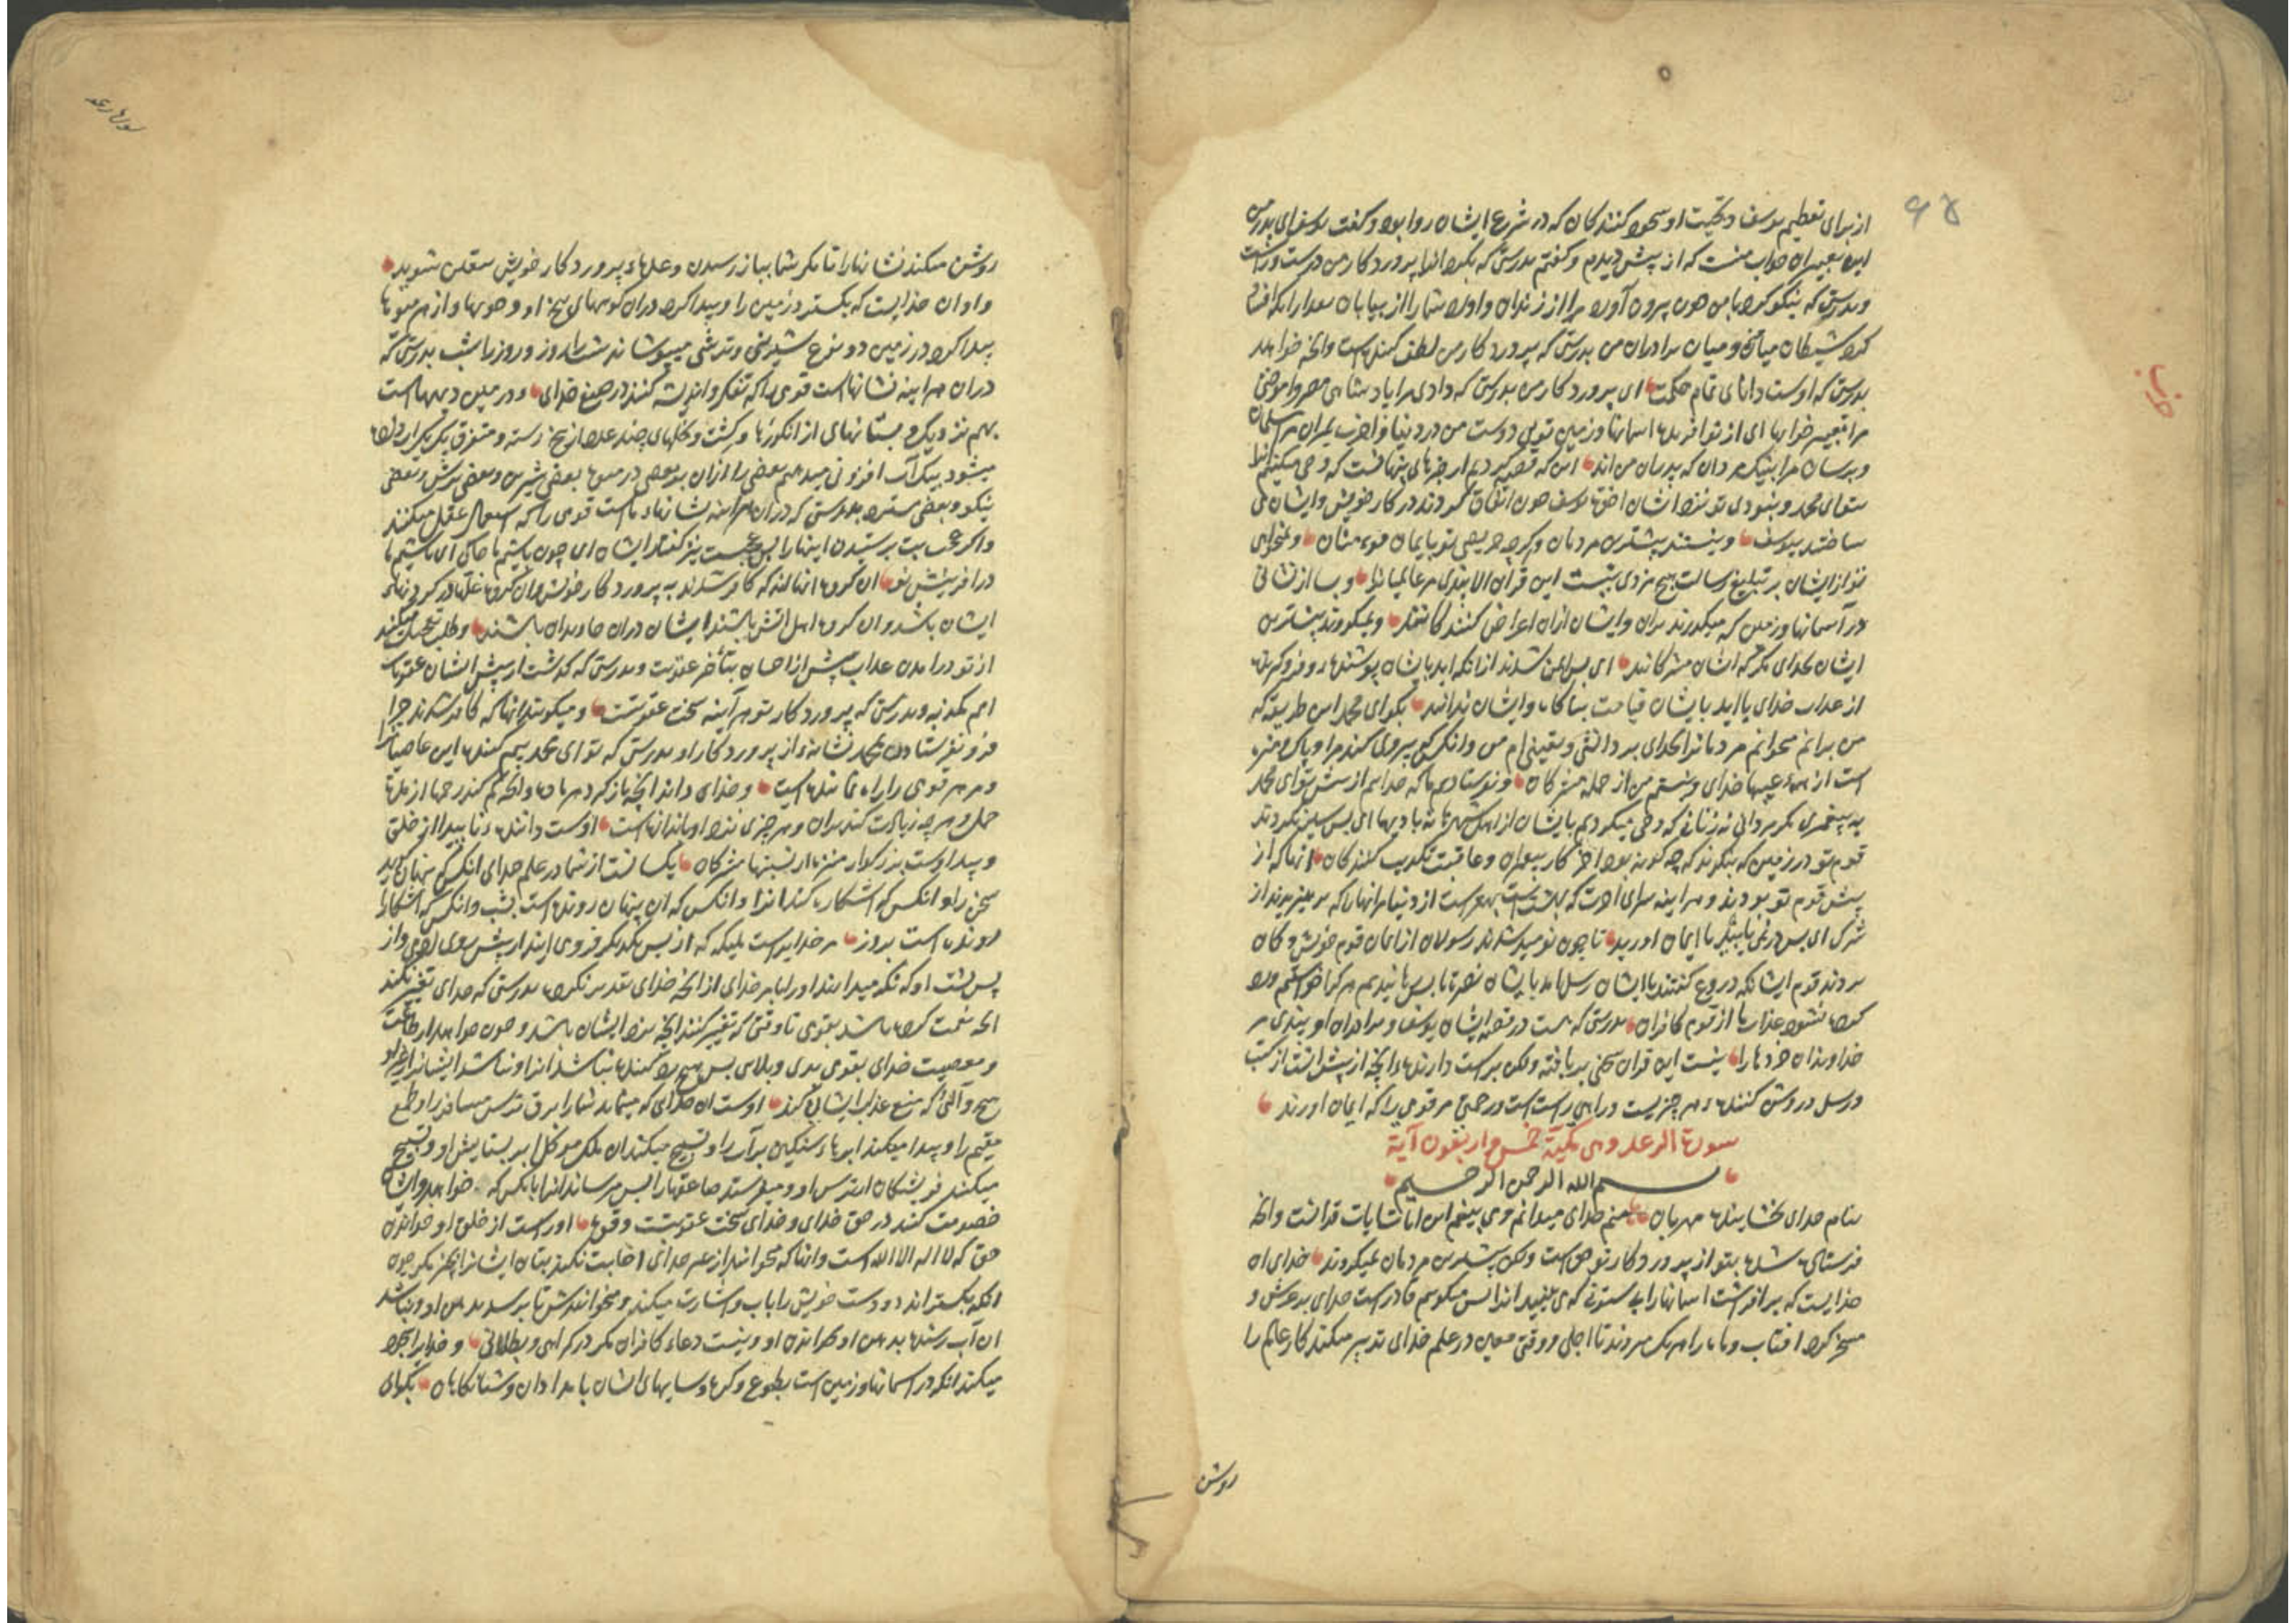 ۹۵
از برای تعظیم یوسف و تحیت او سجود کنندکان که در شرع ایشان روا بود و کفت یوسف ای پدر من
این تعبیر ان خواب منست که از پیش دیدم و کفتم بدرستی که بکرد انرا پروردکار من درست و راست
و بدرستی که نیکو کرد با من چون بیرون آورد مرا از زندان و آورد شما را از بیابان بعد از انکه افساد
کرد شیطان میان من و میان برادران من بدرستی که پروردکار من لطف کننده است وانچه خواهد
بدرستی که اوست دانای تمام حکمت ای پروردکار من بدرستی که دادی مرا پادشاهی مصر و آموختی
مرا تعبیر خوابها ای از نو آفریده اسمانها و زمین تویی دوست من در دنیا و آخرت بمیران مرا مسلمان
و برسان مرا بنیک مردان که پدران من اند این که قصه کردیم از خبرهای پنهانست که وحی میکنیم انرا
بتو ای محمد و نبودی تو نزد ایشان اخوة یوسف چون اتفاق کردند در کار خویش و ایشان می
ساختند بیوسف و نیستند بیشترین مردمان و کرچه حریصی تو بایمان مؤمنان و نمیخواهی
تو از ایشان بر تبلیغ رسالت هیچ مزدی نیست این قرآن الا پندی مر عالمیانرا و بسا از نشانی
در آسمانها و زمین که میکذرند بران و ایشان ازان اعراض کنندکانند و نمیکروند بیشترین
ایشان بخدای مکر که ایشان مشرکانند ای پس ایمن شدند از انکه اید بایشان پوشنده و فروکیرنده
از عذاب خدای یا اید بایشان قیامت بناکاه و ایشان ندانند بکو ای محمد این طریقه که
من برانم میخوانم مردمانرا بخدای بر دانشی و یقینی ام من و انکس که پیروی کند مرا و پاک و منزه
است از همه عیبها خدای و نیستم من از جمله مشرکان و نفرستادیم ما که خدایم از پیش تو ای محمد
به پیغمبری مکر مردانی نه زنانی که وحی میکردیم بایشان از اهل شهرها نه بادیها ای پس سیر نکردند
قوم تو در زمین که بنکرند که چه کونه بود آخر کار پیغمبران و عاقبت تکذیب کنندکان انها که از
پیش قوم تو بودند و هراینه سرای آخرت که بهشت است بهتر است از دنیا مر انها را که پرهیزیدند از
شرک ای پس در نمی یابید تا ایمان اورید تا چون نومید شدند رسولان از ایمان قوم خویش و کمان
بردند قوم ایشانکه دروغ کفتند با ایشان رسل امد بایشان نصرت ما پس رهانیدیم هر که را خواستیم و رد
کرده نشود عذاب ما از قوم کافران بدرستی که هست در قصه ایشان یوسف و برادران او پندی مر
خداوندان خردها را نیست این قرآن سخنی بر بافته ولکن براست دارنده انچه از پیش انست از کتب
و رسل و روشن کننده هر چیزیست و راهی راست است و رحمتی مر قومی را که ایمان اورند
سورة الرعد وهی مکیة خمس واربعون آیة
بسم الله الرحمن الرحیم
بنام خدای بخشاینده مهربان منم خدای میدانم و می بینم این ایات آیات قرانست وانچه
فرستاده شده بتو از پروردکار تو حق است ولکن بیشترین مردمان نمیکروند خدای ان
خدایست که بر افرشت اسمانها را بی ستونی که می بینید انرا پس میکویم قادر است خدای بر عرش و
مسخر کرد افتاب و ماه را هر یک میروند تا اجلی و وقتی معین در علم خدای تدبیر میکند کار عالم را
روشن
حزب
سوره رعد
روشن میکند نشانها را تا مکر شما بباز رسیدن وعدهاء پروردکار خویش متیقن شوید
و او ان خدایست که بکسترد زمین را و پیدا کرد دران کوههای بیخ آور و جویها و از همه میوها
پیدا کرد در زمین دو نوع شیرینی و ترشی میپوشاند شب را روز و روز را بشب بدرستی که
دران هراینه نشانهاست قومی را که تفکر و اندیشه کنند در صنع خدای و در زمین دیهها است
بهم نزدیک و بستانهای از انکورها و کشت و نخلهای چند علاحده از بیخ رسته و متفرق یک یک آب داده
میشود بیک آب و افزونی میدهیم بعضی را ازان بر بعضی در میوه بعضی شیرین و بعضی ترش و بعضی
نیکو و بعضی بتر بدرستی که دران هراینه نشانهاء ماست قومی را که استعمال عقل میکنند
و اکر عجب بت پرستیدن اینها را پس عجبست نیز کفتار ایشان ای چون باشیم ما خاکی ای باشیم ما
در آفرینش نو ان کروه انهااند که کافر شدند به پروردکار خویش وان کروه غلها در کردنهای
ایشان باشد وان کروه اهل اتش باشند ایشان دران جاویدان باشند و طلب تعجیل میکنند
از تو در امدن عذاب پیش از احسان بتأخیر عقوبت و بدرستی که کذشت از پیش ایشان عقوبات
امم مکذبه و بدرستی که پروردکار تو هر آینه سخت عقوبتست و میکویند انها که کافر شدند چرا
فرو نفرستادن بمحمد نشانهء از پروردکار او بدرستی که تو ای محمد بیم کننده این عاصیانرا
و مر هر قومی را راه نماینده است و خدای داند انچه بار کیرد هر ماده و انچه کم کند رحمها از مدة
حمل و هر چه زیادت کند بران و هر چیزی نزد او باندازه است اوست داننده نا پیدا از خلق
و پیدا اوست بزرکوار منزه از نسبتها مشرکان یکسانست از شما در علم خدای انکس که پنهان کوید
سخن را و انکس که اشکارا کند انرا و انکس که ان پنهان رونده است بشب و انکس که آشکارا
رونده است بروز مر خدایراست ملیکه که از پس یکدیکر فرومی ایند از پیش روی ادمی و از
پس پشت او که نکه میدارند او را بامر خدای از انچه خدای تقدیر نکرده بدرستی که خدای تغییر نکند
انچه نعمت کرده باشد بقومی تا وقتی که تغییر کنند انچه نزد ایشان باشد و چون خواهد از طاعت
و معصیت خدای بقومی بدی و بلای پس هیچ رد کننده نباشد انرا و نباشد ایشانرا از غیر او
هیچ وآلی که منع عذاب ایشان کند اوست ان خدای که مینماید شما را برق ترس مسافر را و طمع
مقیم را و پیدا میکند ابرهاء سنکین برآب را و تسبیح میکند ان ملک موکل ابر بستایش او و تسبیح
میکنند فریشتکان از ترس او و میفرستد صاعقها را پس میرساند انرا بانکس که خواهد و ایشان
خصومت کنند در حق خدای و خدای سخت عقوبتست و قوت او راست از خلق او خواندن
حق که لا اله الا الله است وانها که میخوانند از غیر خدای اجابت نکند بتان ایشانرا بچیزی مکر چون
انکه بکستراند دو دست خویش را باب و اشارت میکند و میخواندش تا برسد بدهن او و نباشد
ان آب رسنده بدهن او بخواندن او و نیست دعاء کافران مکر در کمراهی و بطلانی و خدایرا سجده
میکند انکه در اسمانها و زمین است بطوع و کره و سایهای ایشان بامدادان و شبانکاهان بکو ای